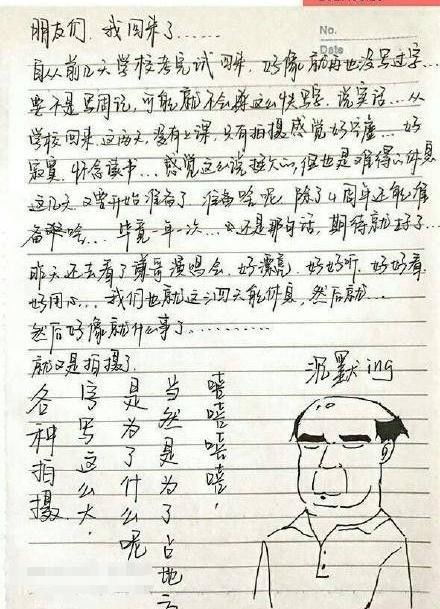 朋友们,我回来了……
No.
Date
自从前几天学校考完试回来,好像就再也没写过字…
要不是写周记,可能就不会提这么快写字,说实话…从
学校回来,这两天,没有上课,只有拍摄感觉好空虚…好
寂寞,怀念读书…感觉这么说挺欠的,但也是难得的休息
这几天又要开始准备了,准备啥呢,除了4周年还能准
备啥…毕竟一年一次…还是那句话,期待就好了…
昨天还去看了哥演唱会,好漂亮,好好听,好好看
好用心…我们也就这三四天能休息,然后就…
然后好像就什么事了………
就又是拍摄了
沉默ing
各种拍摄
字写这么大,
是为了什么呢
当然是为了占地方
嘻嘻嘻嘻,